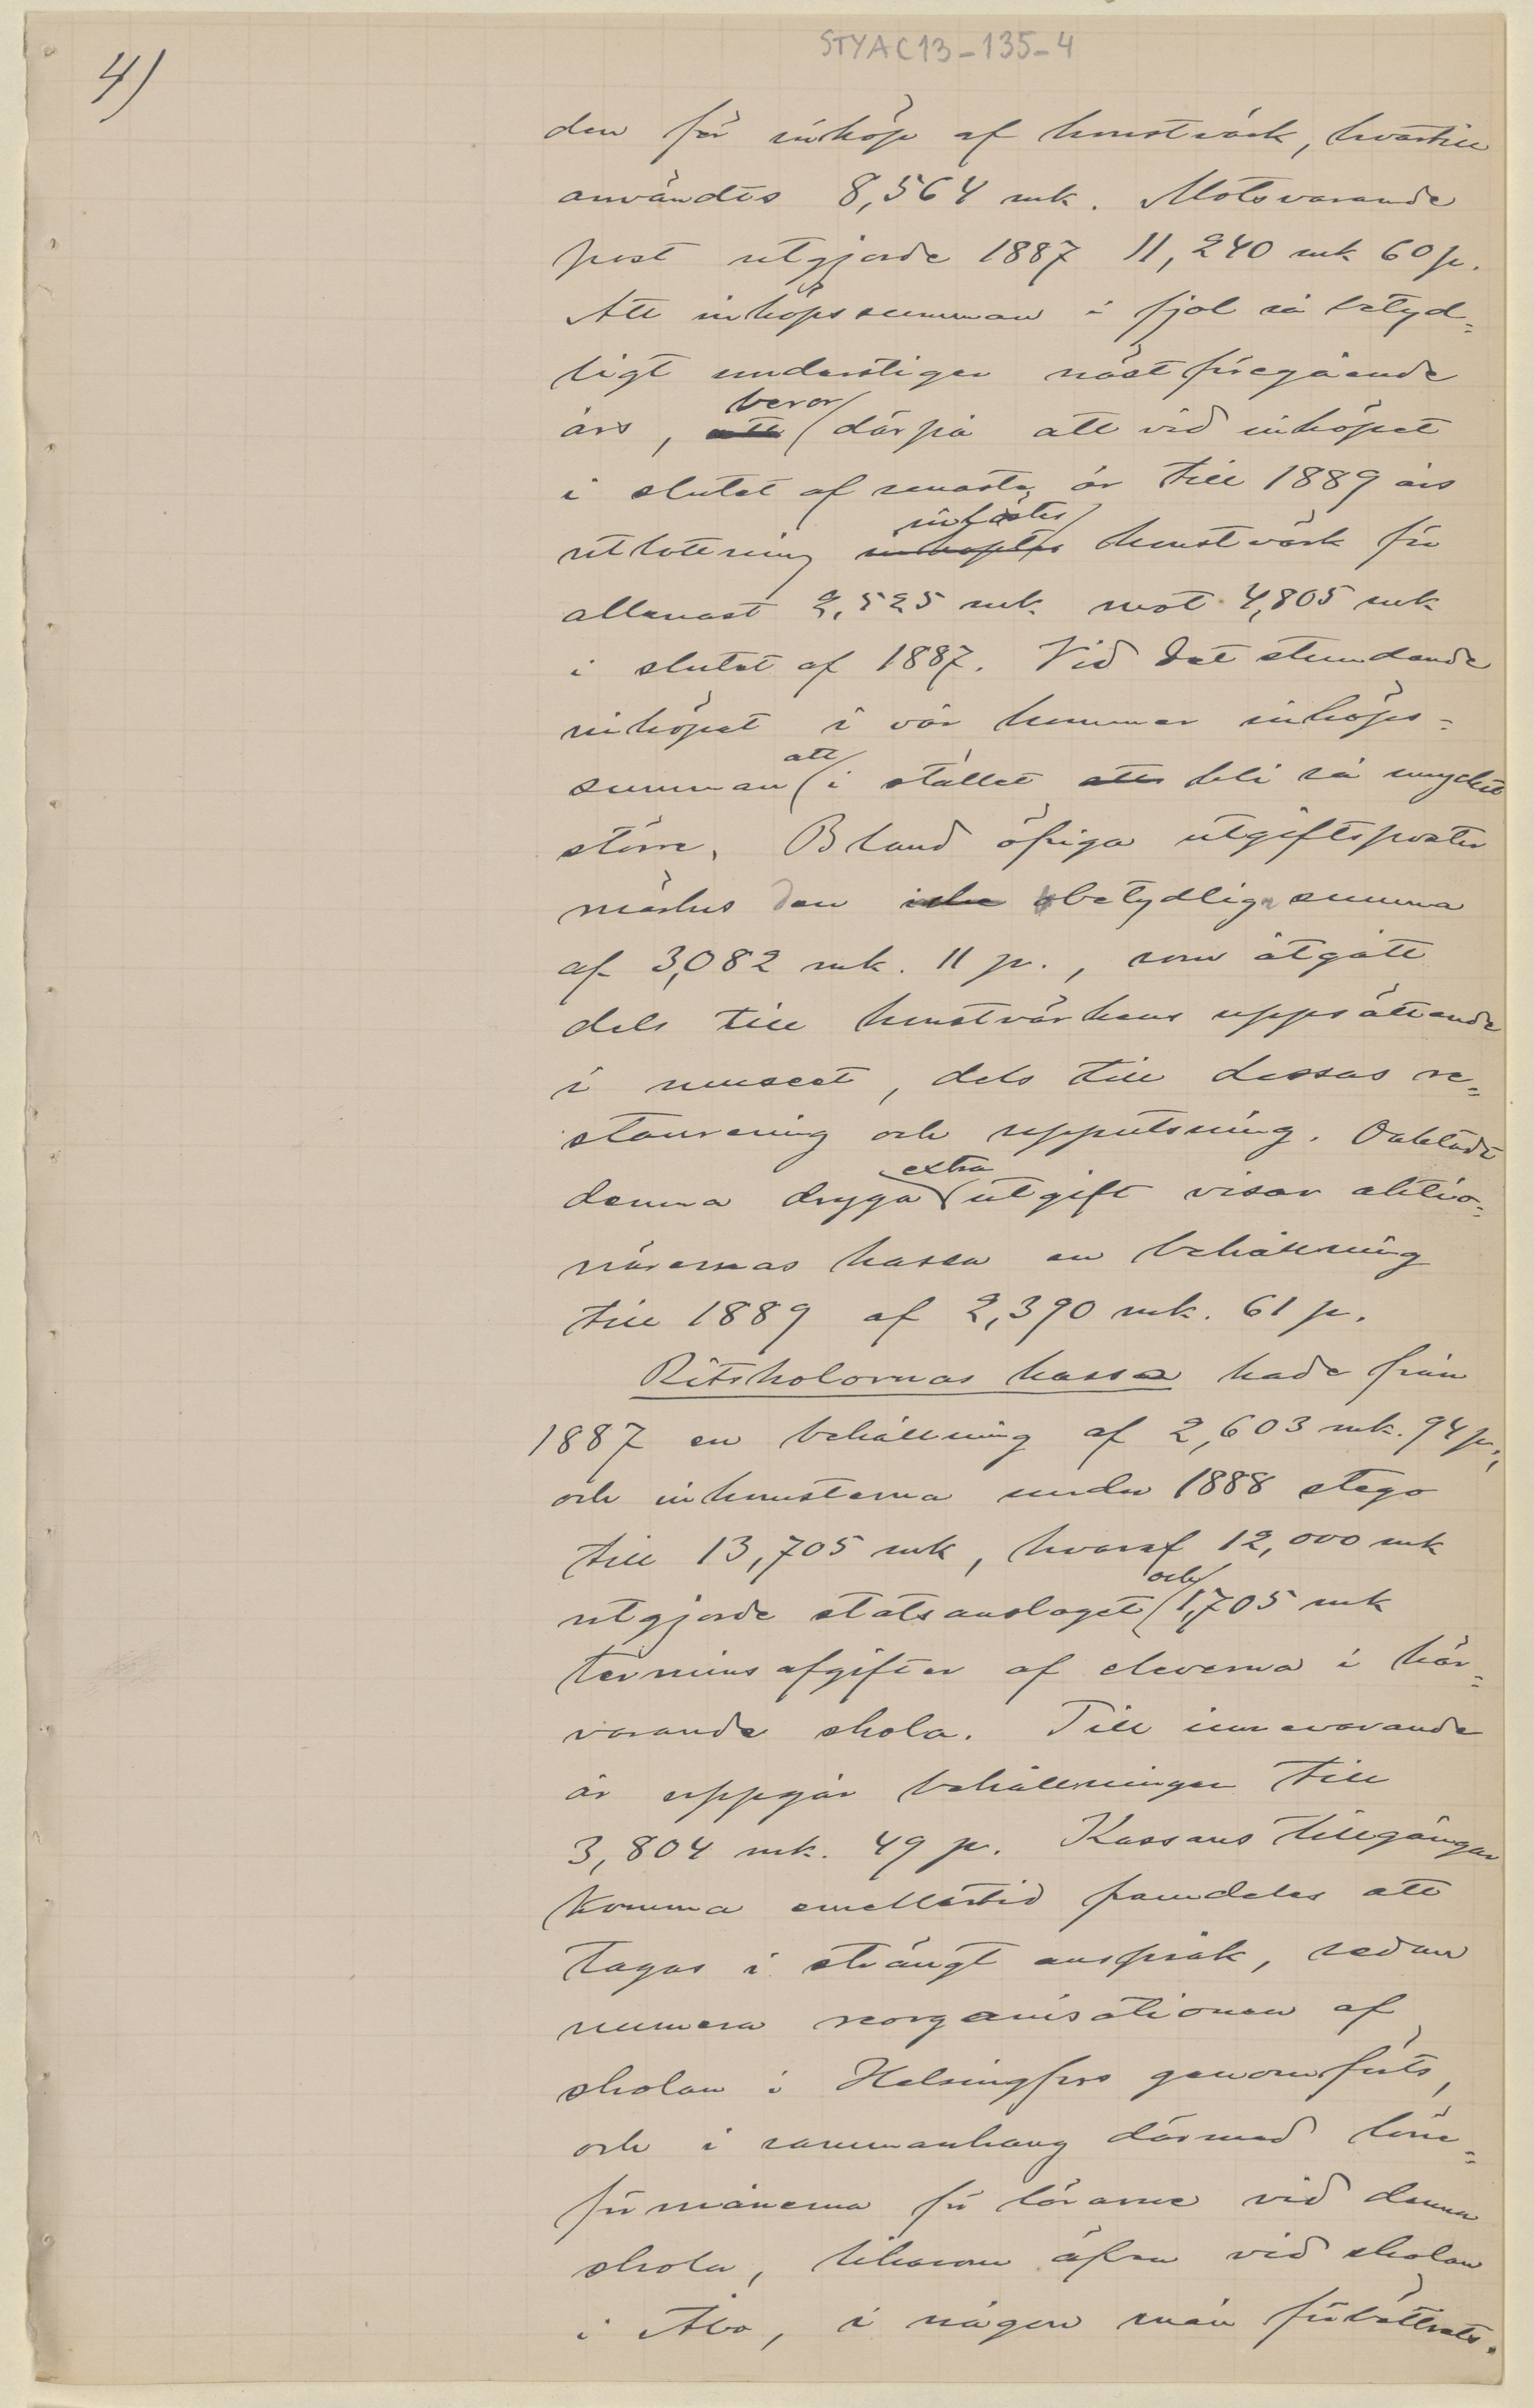 STYAC13-135-4
4)
den för inköp af konstvärk, hvartill
användes 8,564 mk. Motsvarande
post utgjorde 1887 11,240 mk 60 p.
Att inköpssumman i fjol så betyd=
ligt understiger näst föregående
års, att beror därpå att vid inköpet
i slutet af senaste år till 1889 års
utlottning inköptes inlöstes konstvärk för
allenast 2,525 mk. mot 4,805 mk
i slutet af 1887. Vid det stundande
inköpet i vår kommer inköps=
summan att i stället att bli så mycket
större. Bland öfriga utgiftsposter
märkes den icke obetydliga summa
af 3,082 mk. 11 p., som åtgått
dels till konstvärkens uppsättande
i museet, dels till dessas re=
staurering och upputsning. Oaktadt
denna dryga extra utgift visar aktio=
närernas kassa en behållning
till 1889 af 2,390 mk. 61 p.
Ritskolornas kassa hade från
1887 en behållning af 2,603 mk. 94 p.,
och inkomsterna under 1888 stego
till 13,705 mk, hvaraf 12,000 mk
utgjorde statsanslaget och 1,705 mk
terminsafgifter af eleverna i här=
varande skola. Till innevarande
år uppgår behållningen till
3,804 mk. 49 p. Kassans tillgångar
komma emellertid framdeles att
tagas i strängt anspråk, sedan
numera reorganisationen af
skolan i Helsingfors genomförts,
och i sammanhang därmed löne=
förmånerna för lärarne vid denna
skola, liksom äfven vid skolan
i Åbo, i någon mån förbättrats.